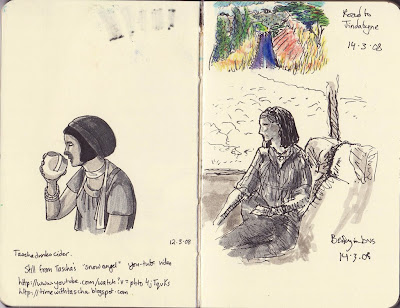 12-3-08
Tascha drinks cider.
Still from Tascha's "snow angel" you-tube video
http://www.youtube.com/watch?v=
http://timewithtascha.blogspot.com
Road to
Jindalyne
14-3-08
in bus
14-3-08